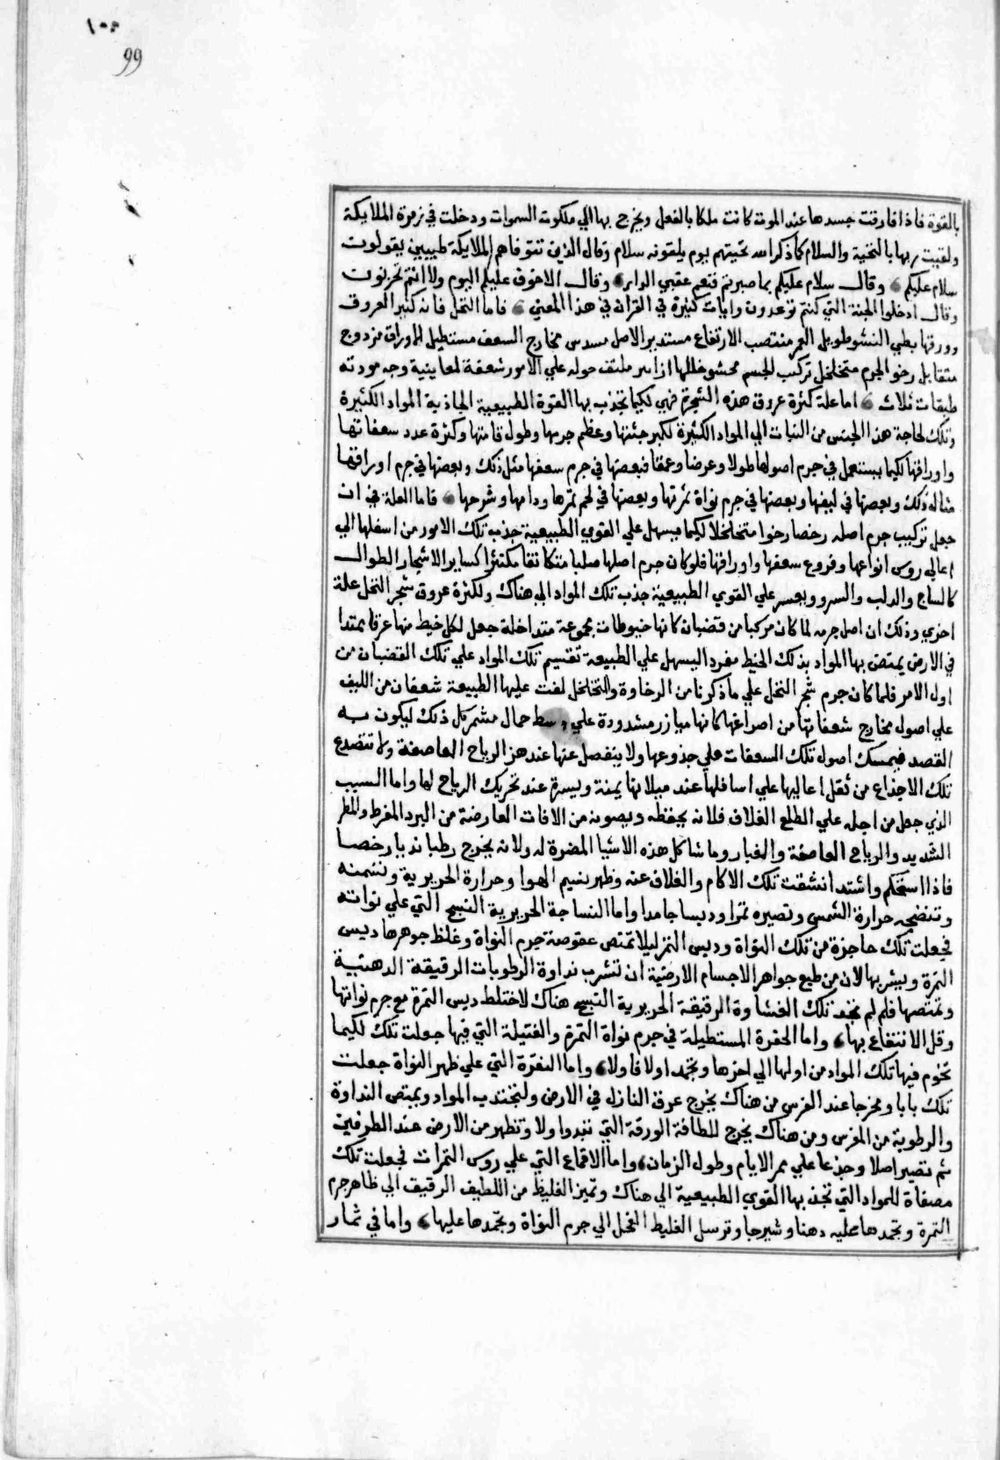 ١٠٥
99
بالقوة فاذا فارقت جسدها عند الموت كانت ملكا بالفعل ويخرج بها الي ملكوت السموات ودخلت في زمرة الملايكة
ولقيت ربها بالتحية والسلام كما ذكر الله تحيتهم يوم يلقونه سلام وقال الذين تتوفاهم الملايكة طيبين يقولون
سلام عليكم وقال سلام عليكم بما صبرتم فنعم عقبي الدار وقال لاخوف عليكم اليوم ولا انتم تحزنون
وقال ادخلوا الجنة التي كنتم توعدون وايات كثيرة في القران في هذا المعني فاما النخل فانه كثير العروق
وورقها بطي النشو طويل العمر منتصب الارتفاع مستدير الاصل مسدس مخارج السعف مستطيل الاوراق مزدوج
متقابل رخو الجرم متخلخل تركيب الجسم محشو خللها ملتف حوله علي الامور
طبقات ثلاث اما علة كثرة عروق هذه الشجرة فهي لكيما تجذب بها القوة الطبيعية الجاذبة المواد الكثيرة
وتلك لحاجة هذا الجنس من النبات الي المواد الكثيرة لكبر جثتها وعظم جرمها وطول قامتها وكثرة عدد سعفاتها
واوراقها لكيما يستعمل في جرم اصولها طولا وعرضا وعمقا فبعضها في جرم سعفها مثل ذلك وبعضها في جرم اوراقها
مثاله ذلك وبعضها في ليفها وبعضها في جرم نواة ثمرتها وبعضها في لحم تمرها ودامها وشرحها فاما العلة في ان
جعل تركيب جرم اصله رخصا رخوا متخلخلا لكيما يسهل علي القوي الطبيعية جذب تلك الامور من اسفلها الي
اعالي روس انواعها وفروع سعفها واوراقها فلو كان جرم اصلها صلبا متكاثفا مكتنزا كساير الاشجار الطوال
كالساج والدلب والسرو ويعسر علي القوي الطبيعية جذب تلك المواد الي هناك ولكثرة عروق شجر النخل علة
اخري وذلك ان اصل جرمه لما كان مركبا من قضبان كانها خيوطات مجموعة متداخلة جعل لكل خيط منها عرقا ممتدا
في الارض يمتص بها المواد بذلك الخيط مفردا ليسهل علي الطبيعة تقسيم تلك المواد علي تلك القضبان من
اول الامر فلما كان جرم شجر النخل علي ما ذكرنا من الرخاوة والتخلخل لفت عليها الطبيعة شعفان من الليف
علي اصول مخارج شعفاتها من اصداغها كانها ميازر مشدودة علي وسط حمال مشمر كل ذلك ليكون به
القصد فيمسك اصول تلك السعفات علي جذوعها ولا ينفصل عنها عند هز الرياح العاصفة ولا تتصدع
تلك الاجذاع من ثقل اعاليها علي اسافلها عند ميلانها يمنة ويسرة عند تحريك الرياح لها واما السبب
الذي جعل من اجله علي الطلع الغلاف فلانه يحفظه ويصونه من الافات العارضة من البرد المفرط والمطر
الشديد والرياح العاصفة والغبار وما شاكل هذه الاشيا المضرة له ولانه يخرج رطبا نديا رخصا
فاذا استحكم واشتد انشقت تلك الاكام والغلاف عنه وظهر نسيم الهوا وحرارة الحريرية وتشمنه
وتنضجه حرارة الشمس وتصيره تمرا ودبسا جامدا واما النساجة الحريرية النسج التي علي نواته
فجعلت تلك حاجزة من تلك النواة ودبس التمر ليلا تمتص عفوصة جرم النواة وغلظ جوهرها دبس
التمرة ويشربها لان من طبع جواهر الاجسام الارضية ان تتشرب نداوة الرطوبات الرقيقة الدهنية
وتمتصها فلم لم يجد تلك الغشاوة الرقيقة الحريرية النسج هناك لاختلط دبس التمرة مع جرم نواتها
وقل الانتفاع بها واما الحفرة المستطيلة في جرم نواة التمرة والفتيلة التي فيها جعلت تلك لكيما
تخزم فيها تلك المواد من اولها الي اخرها وتجمد اولا فاولا واما النقرة التي علي ظهر النواة جعلت
تلك بابا ومخرجا عند الغرس من هناك يخرج عرق النازل في الارض ولتجتذب المواد ويمتص النداوة
والرطوبة من المغرس ومن هناك يخرج للطافة الورقة التي تبدوا ولا وتظهر من الارض عند الطرفين
ثم تصير اصلا وجذعا علي ممر الايام وطول الزمان واما الاقماع التي علي روس التمرات فجعلت تلك
مصفاة للمواد التي تجذبها القوي الطبيعية الي هناك وتميز الغليظ من اللطيف الرقيق الي ظاهر جرم
التمرة وتجمدها عليه دهنا وشيرجا وترسل الغليظ الي جرم النواة وتجمدها عليها واما في ثمار